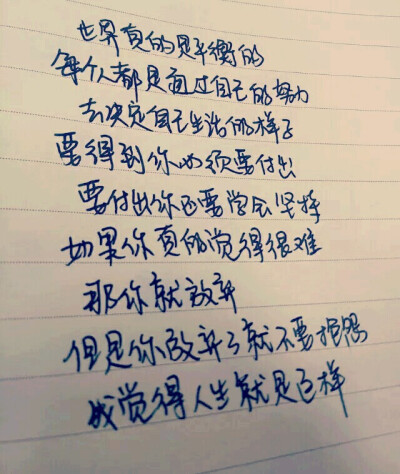 世界真的是平衡的
每个人都是通过自己的努力
去决定自己生活的样子
要得到你必须要付出
要付出你还要学会坚持
如果你真的觉得很难
那你就放弃
但是你放弃了就不要抱怨
我觉得人生就是这样